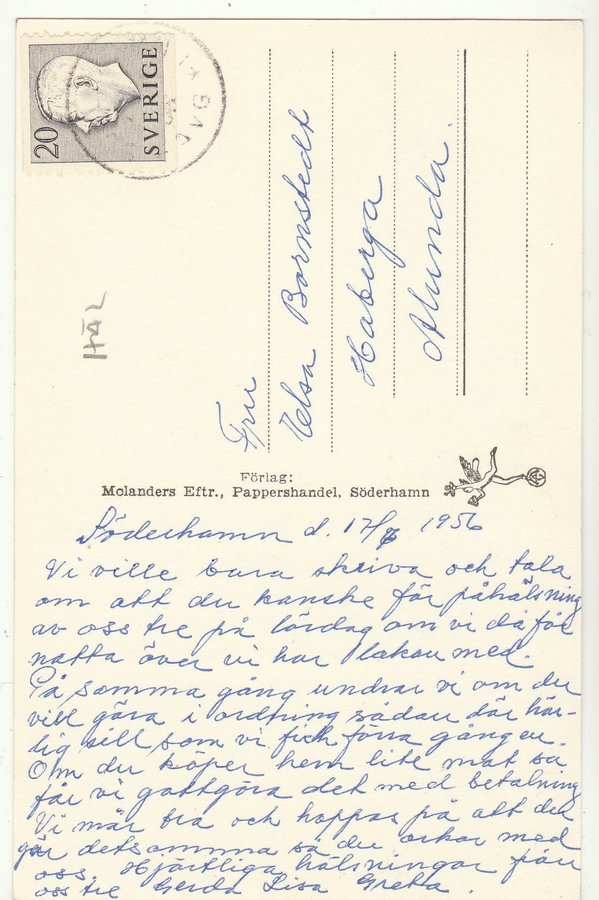 20
SVERIGE
HÄL
Fru
Elsa Bornstedt
Haberga
Alunda.
Förlag:
Molanders Eftr., Pappershandel, Söderhamn
Söderhamn d. 17/7 1956
Vi ville bara skriva och tala
om att du kanske får påhälsning
av oss tre på lördag om vi då får
natta över vi har lakan med.
På samma gång undrar vi om du
vill göra i ordning sådan där här-
lig sill som vi fick förra gången.
Om du köper hem lite mat så
får vi gottgöra det med betalning
Vi mår bra och hoppas på att du
gör detsamma så du orkar med
oss. Hjärtliga hälsningar från
oss tre Gerda Lisa Greta.